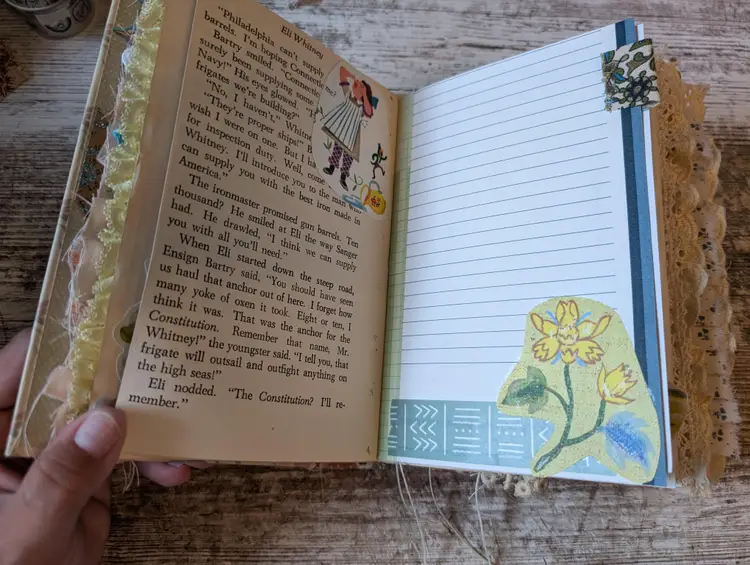 Eli Whitney
"Philadelphia can't supply
barrels. I'm hoping Connecticut
Bartry smiled. "Connecticut
surely been supplying some
Navy!" His eyes glowed.
frigates we're building?"
"No, I haven't," Whitney
"They're proper ships!"
wish I were on one. But I ha
for inspection duty. Well, come
Whitney. I'll introduce you to the man who
can supply you with the best iron made in
America."
The ironmaster promised gun barrels. Ten
thousand? He smiled at Eli the way Sanger
had. He drawled, "I think we can supply
you with all you'll need."
When Eli started down the steep road,
Ensign Bartry said, "You should have seen
us haul that anchor out of here. I forget how
many yoke of oxen it took. Eight or ten, I
think it was. That was the anchor for the
Constitution. Remember that name, Mr.
Whitney!" the youngster said. "I tell you, that
frigate will outsail and outfight anything on
the high seas!"
Eli nodded. "The Constitution? I'll re-
member."